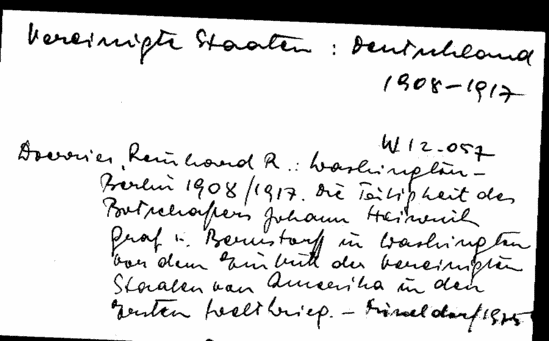 Vereinigte Staaten : Deutschland
1908-1917
W 12-057
Doerries, Reinhard R.: Washington-
Berlin 1908/1917. Die Tätigkeit des
Botschafters Johann Heinrich
Graf v. Bernstorff in Washington
vor dem Eintritt der Vereinigten
Staaten von Amerika in den
Ersten Weltkrieg. - Düsseldorf 1975